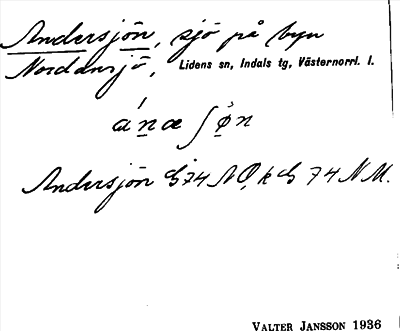 Andersjön, sjö på byn
Nordansjö, Lidens sn, Indals tg, Västernorrl. l.
ánæ ʃøn
Andersjön G 74 NO, k G 74 NM.
VALTER JANSSON 1936